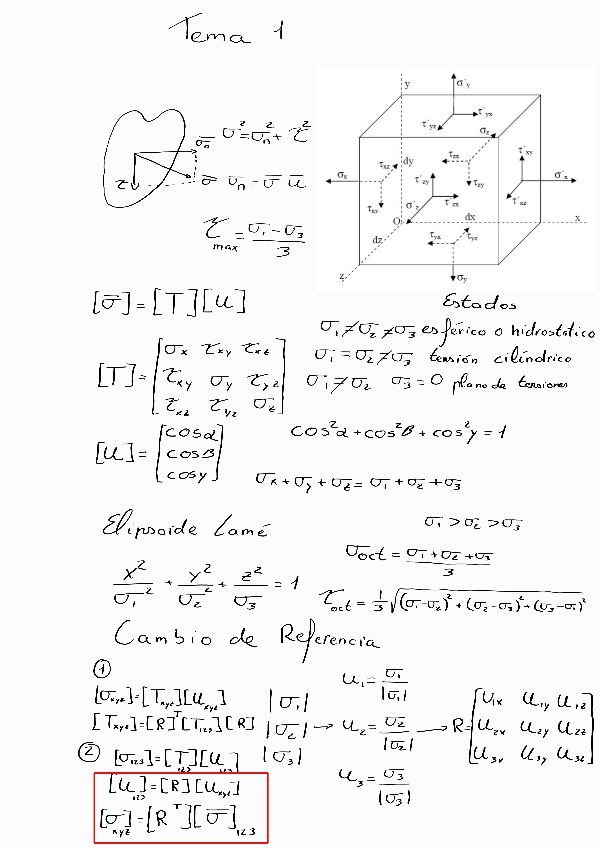 Tema 1
σ² = σn² + τ²
σn
τ
σ
σn = σ̄ ū
τmax = (σ1 - σ3)/3
y
σ'y
τ'yx
τ'yz
σz
τ'xy
τxz
dy
τzx
σx
σ'x
τ'zy
τzy
τxy
σ'z
τ'zx
τ'xz
O
dx
x
τyx
τyz
dz
z
σy
[σ̄] = [T][U]
Estados
σ1 ≠ σ2 ≠ σ3 esférico o hidrostático
σ1 = σ2 ≠ σ3 tensión cilíndrico
σ1 ≠ σ2 σ3 = 0 plano de tensiones
[T] = [σx τxy τxz
τxy σy τyz
τxz τyz σz]
[U] = [cosα
cosβ
cosγ]
cos²α + cos²β + cos²γ = 1
σx + σy + σz = σ1 + σ2 + σ3
Elipsoide Lamé
σ1 > σ2 > σ3
σoct = (σ1 + σ2 + σ3)/3
x²/σ1² + y²/σ2² + z²/σ3 = 1
τoct = 1/3 √((σ1-σ2)² + (σ2-σ3)² + (σ3-σ1)²)
Cambio de Referencia
①
[σxyz] = [Txyz][Uxyz]
[Txyz] = [R]ᵀ[T123][R]
|σ1|
|σ2| →
|σ3|
U1 = σ1/|σ1|
U2 = σ2/|σ2|
U3 = σ3/|σ3|
→ R = [U1x U1y U1z
U2x U2y U2z
U3x U3y U3z]
② [σ123] = [T]123 [U]123
[U]123 = [R][Uxyz]
[σ]xyz = [Rᵀ][σ̄]123